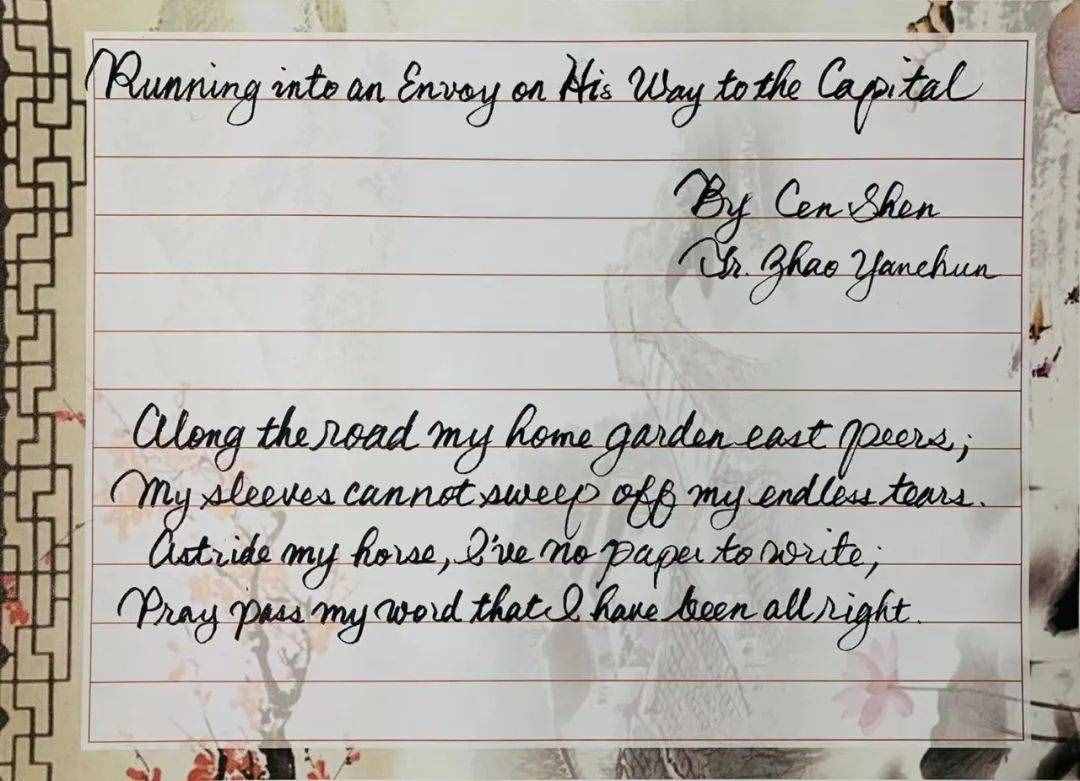 Running into an Envoy on His Way to the Capital
By Cen Shen
Tr. Zhao Yanchun
Along the road my home garden east peers;
My sleeves cannot sweep off my endless tears.
Astride my horse, I've no paper to write;
Pray pass my word that I have been all right.